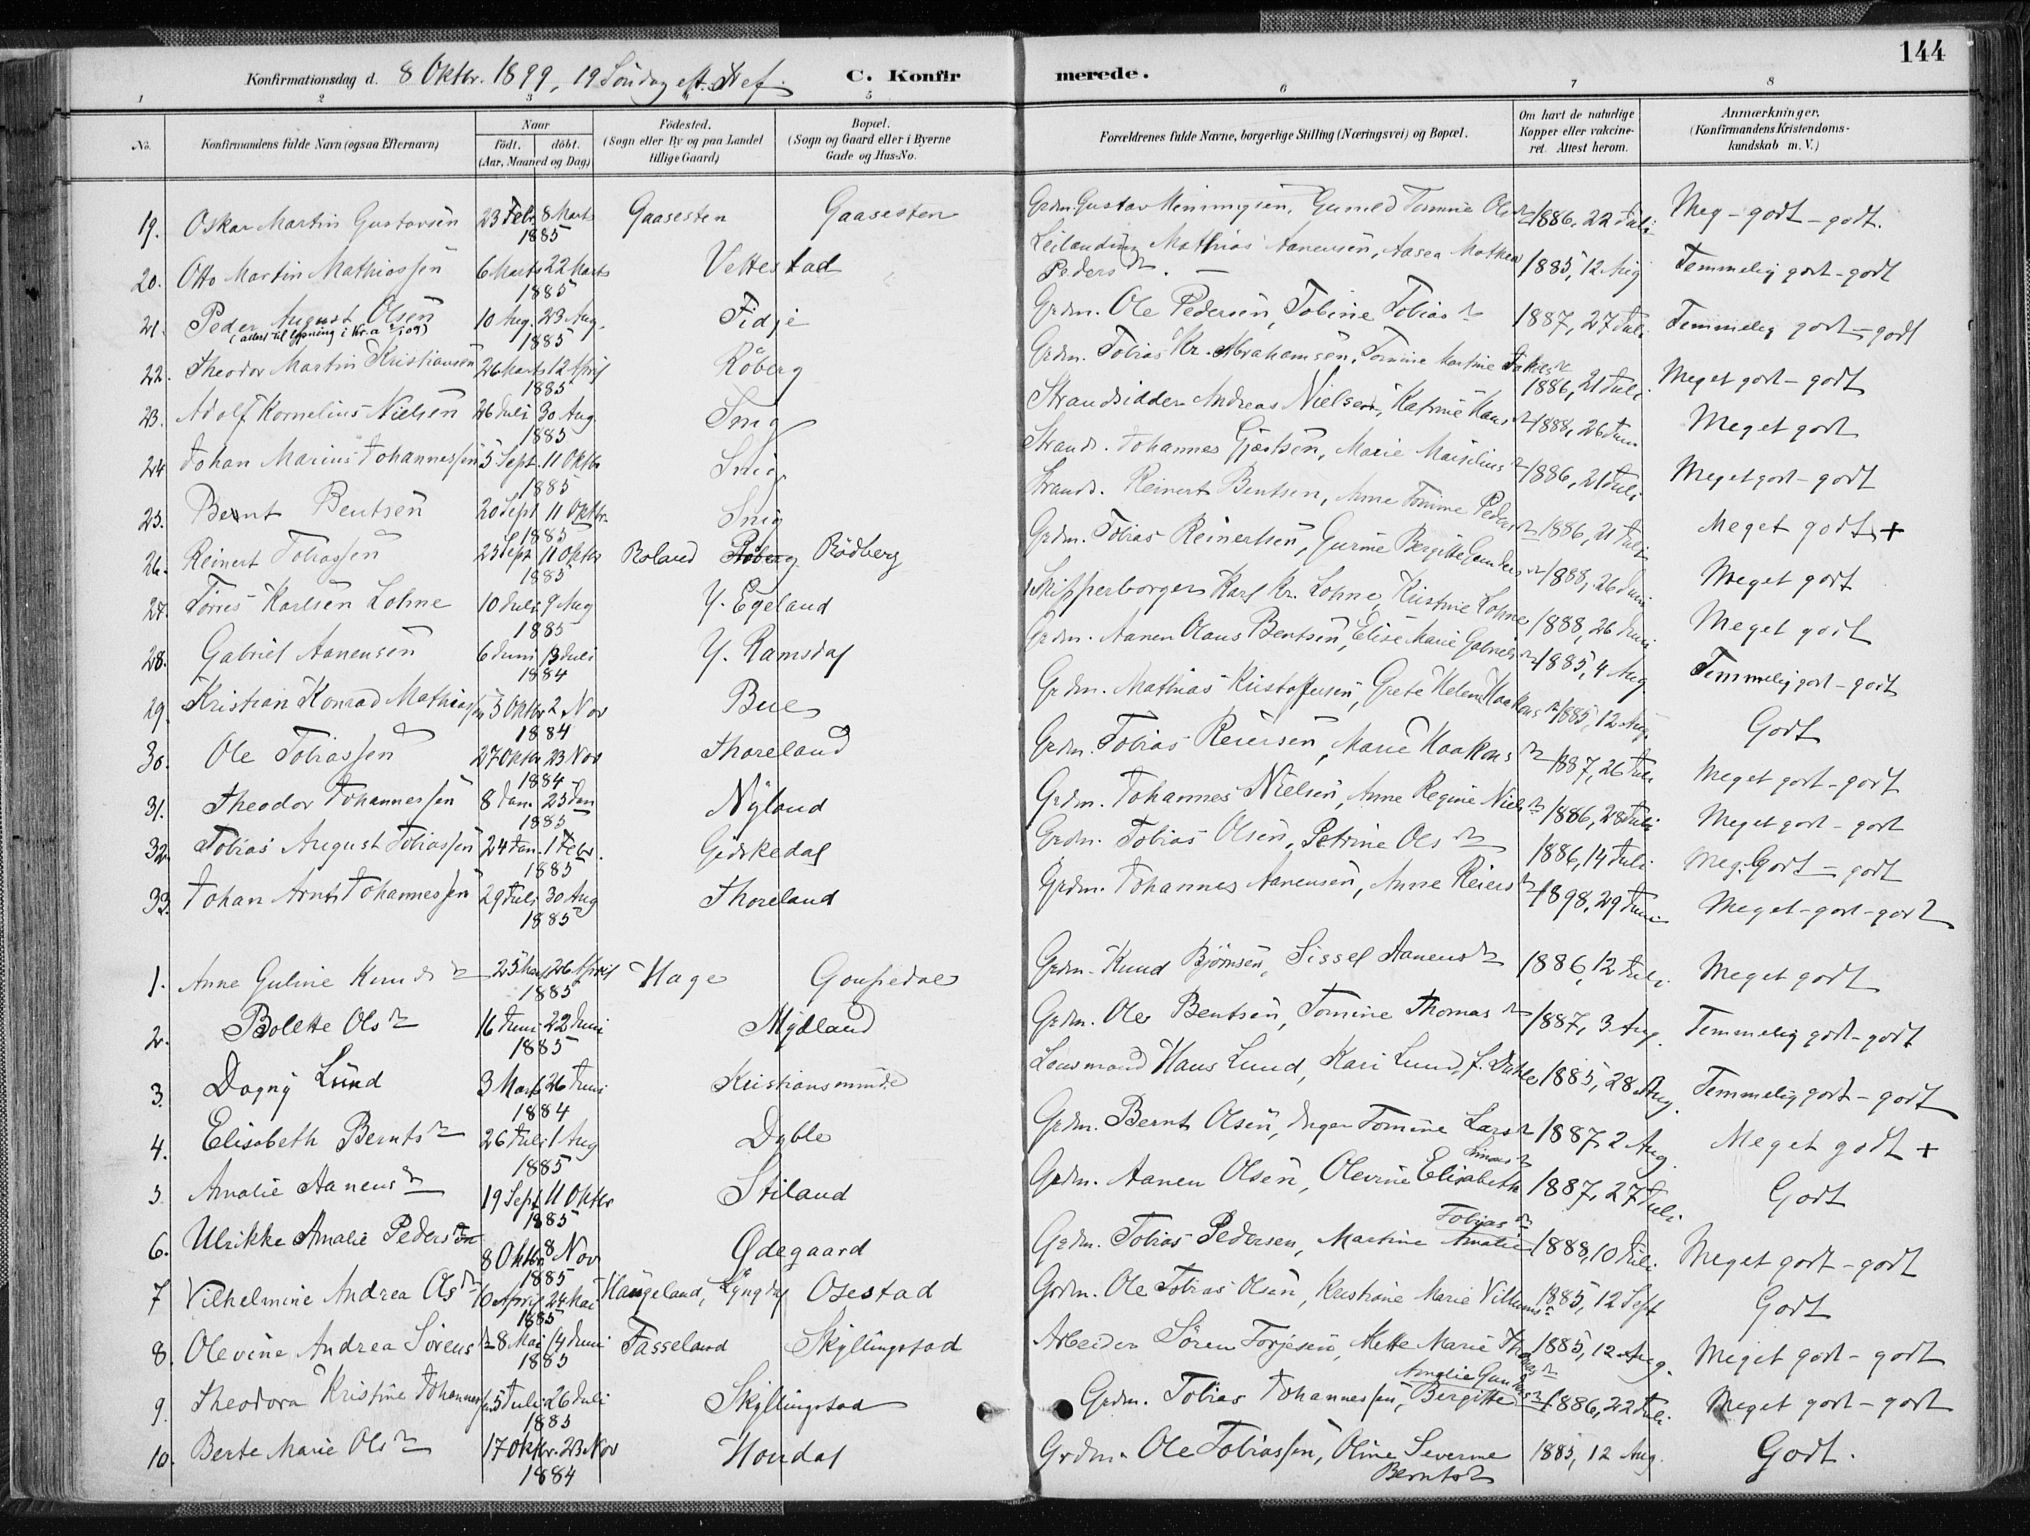 144
Konfirmationsdag d. 8 Oktbr. 1899, 19 Søndag eft. Tref. C. Konfirmerede.
1 2 3 5 6 7 8
No. Konfirmandens fulde Navn (ogsaa Efternavn) Naar født. døbt. (Aar, Maaned og Dag) Fødested. (Sogn eller By og paa Landet tillige Gaard) Bopæl. (Sogn og Gaard eller i Byerne Gade og Hus-No. Forældrenes fulde Navne, borgerlige Stilling (Næringsvei) og Bopæl. Om havt de naturlige Kopper eller vakcineret. Attest herom. Anmærkninger. (Konfirmandens Kristendomskundskab m. V.)
19. Oskar Martin Gustavsen 23 Feb. 8 Marts 1885 Gaasesten Gaasesten Grdm. Gustav 1886, 22 Juli Meg-godt-godt.
20. Otto Martin Mathiassen 6 Marts 22 Marts 1885 Vettestad Leilænding Mathias Aanensen, Aasea Mathea Peders dr. 1885, 12 Aug Temmelig godt-godt
21. Peder August Olsen 10 Aug. 23 Aug. 1885 Fidje Grdm. Ole Pedersen, Tobine Tobias dr 1887, 27 Juli Temmelig godt-godt
22. Theodor Martin Kristiansen 26 Marts 12 April 1885 Røberg Grdm. Tobias Kr. Abrahamsen, Tomine Martine 1886, 21 Juli. Meget godt-godt
23. Adolf Kornelius Nielsen 26 Juli 30 Aug 1885 Snig Strandsidder Andreas Nielsen, Katrine Hans dr 1888, 26 Juni Meget godt
24 Johan Marius Johannessen 5 Sept. 11 Oktbr 1885 Snig Strands. Johannes Gjertsen, Marie 1886, 21 Juli Meget godt-godt
25. Bernt Bentsen 20 Sept 11 Oktbr. 1885 Snig Strands. Reinert Bentsen, Anne Tomine Peders dr 1886, 21 Juli Meget godt +
26. Reinert Tobiassen 23 Sept 11 Oktbr 1885 Roland Rødberg Grdm. Tobias Reinertsen, Gurine Bergitte Gunders dr 1888, 26 Juni Meget godt
27. Tørres Karlsen Lohne 10 Juli 9 Aug 1885 Y. Egeland Skipperborger Karl Kr. Lohne, Kristine Lohne 1888, 26 Juni Meget godt
28. Gabriel Aanensen 6 Juni 13 Juli 1884 Y. Ramsdal Grdm. Aanen Olaus Bentsen, Elise Marie Gabriels dr 1885, 4 Aug Temmelig godt-godt
29. Kristian Konrad Mathiassen 5 Oktbr 2 Nov 1884 Bue Grdm. Mathias Kristoffersen, Grete Helene Haakons dr 1885, 12 Aug. Godt
30. Ole Tobiassen 27 Oktbr 23 Nov 1884 Thoreland Grdm. Tobias Reiersen, Marie Haakons dr 1887, 26 Juli Meget godt-godt
31. Theodor Johannessen 8 Jan. 25 Jan 1885 Nyland Grdm. Johannes Nielsen, Anne Regine Niels dr 1886, 28 Juli Meget godt-godt
32 Tobias August Tobiassen 24 Jan. 1 Febr. 1885 Gidskedal Grdm. Tobias Olsen, Petrine Ols dr 1886, 14 Juli Meg. Godt-godt
33. Johan Arnt Johannessen 29 Juli 30 Aug 1885 Thoreland Grdm. Johannes Aanensen, Anne Reiers dr 1898, 29 Juni Meget-godt-godt
1. Anne Guline Knuds dr 25 Mars 26 April 1885 Hage Grdm. Knud Bjørnsen, Sissel Aanens dr 1886, 12 Juli. Meget godt
2. Bolette Ols dr 16 Juni 22 Juni 1885 Mydland Grdm. Ole Bentsen, Tomine Thomas dr 1887, 3 Aug. Temmelig godt-godt
3. Dagny Lund 3 Marts 26 Juni 1884 Kristianssunde Lensmand Hans Lund, Kari Lund, f. Dahle 1885, 28 Aug. Temmelig godt-godt
4. Elisabeth Bernts dr 26 Juli 1 Aug 1885 Dyble Grdm. Bernt Olsen, Inger Tomine Lars dr 1887, 2 Aug. Meget godt +
5 Amalie Aanens dr 19 Sept 11 Oktbr 1885 Stiland Grdm. Aanen Olsen, Olevine Elisabeth 1887, 27 Juli Godt
6. Ulrikke Amalie Peders 8 Oktbr 8 Nov 1885 Ødegaard Grdm. Tobias Pedersen, Martine Amalie Tobias dr 1888, 10 Juli. Meget godt-godt
7 Vilhelmine Andrea Ols dr 10 April 24 Mai 1885 Haugeland, Lyngdal Osestad Grdm. Ole Tobias Olsen, Kristiane Marie Villums dr 1885, 12 Sept Godt
8. Olevine Andrea Sørens dr 8 Mai 14 Juni 1885 Tasseland Skyllingstad Arbeider Søren Torjesen, Mette Marie 1885, 12 Aug. Meget godt-godt
9. Theodora Kristine Johannessen 5 Juli 26 Juli 1885 Skyllingstad Grdm. Tobias Johannessen, Bergitte Amalie 1886, 22 Juli. Meget godt-godt
10. Berte Marie Ols dr 17 Oktbr. 23 Nov 1884 Houdal Grdm. Ole Tobiassen, Oline Severine Bernts dr 1885, 12 Aug. Godt.